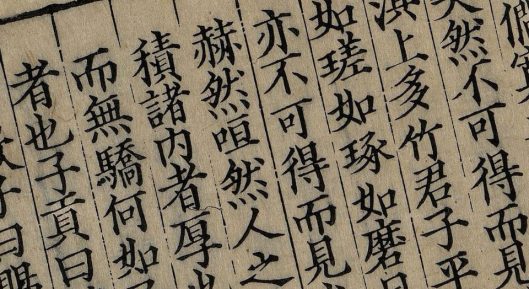 然不可得而見
上多竹君子平
如瑳如琢如磨
亦不可得而見
赫然咺然人之
積諸内者厚
而無驕何如
者也子貢曰
子曰